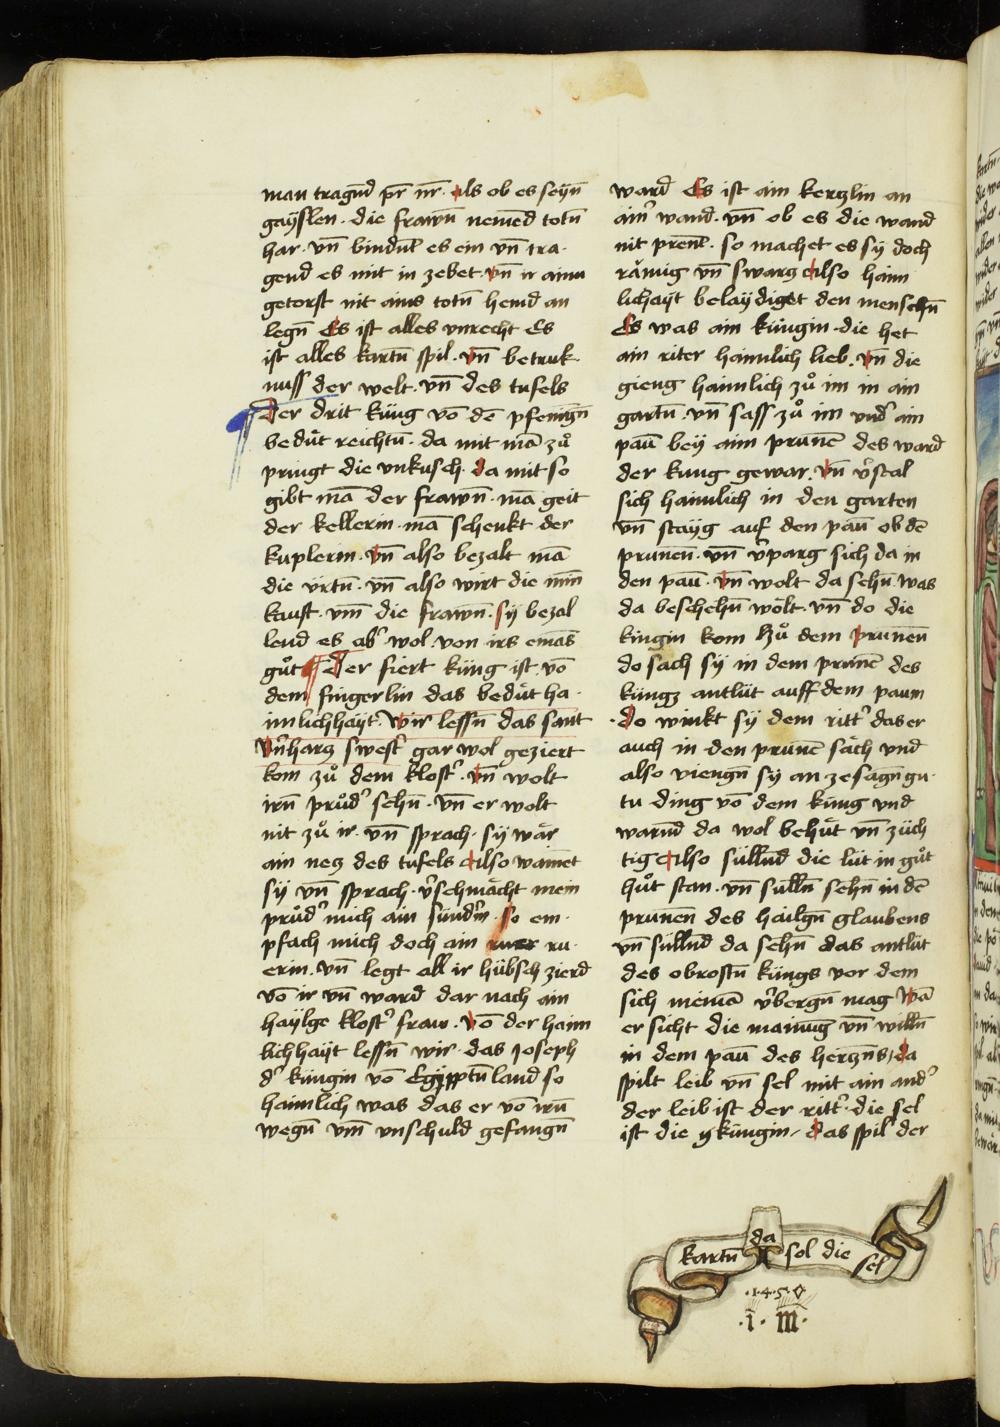 man tragnd p̄r nr̄. als ob es seyn̄
gaÿslen. die frawn̄ nemed totn̄
har. vn̄ bindnt es ein vn̄ tra-
gend es mit in zebet. vn̄ ir aine
getorst nit ains totn̄ hemd an
legn̄ Es ist alles vnrecht Es
ist alles kartn̄ spil. vn̄ betruk
nuss der welt. vn̄ des tufels
Der drit küng vō dē pfeningn̄
bedǔt reichtu᷈. da mit mā zů
pringt die vnkusch. da mit so
gibt mā der frawn̄. mā geit
der kellerin. mā schenkt der
kuplerin. vn̄ also bezalt mā
die vrtn̄. vn̄ also wirt die min̄
kauft. vm̄ die frawn̄. sÿ bezal
lend es ab᾽ wol. von irs emās
gůt Der fiert küng ist vō
dem fingerlin das bedǔt ha-
imlichhaÿt. Wir lessn̄ das sant
Bn̄harz swest᾽ gar wol geziert
kom zů dem klost᾽. vn̄ wolt
irn̄ průd᾽ sehn̄. vn̄ er wolt
nit zů ir. vn̄ sprach. sÿ wǎr
ain nez des tufels Also wainet
sÿ vn̄ sprach. v᾽schmǎcht mein
průd᾽ mich ain sündn̄. so em-
pfach mich doch ain ru-
erin. vn̄ legt all ir hübsch zierd
vō ir vn̄ ward dar nach ain
haÿlge klost᾽ fraw. Vō der haim
lichhaÿt lessn̄ wir. das Joseph
d᾽ küngin vō Egÿptn̄land so
haimlich was das er vō irn̄
wegn̄ vm̄ vnschuld gefangn̄
ward Es ist ain kerzlin an
ain᾽ wand. vn̄ ob es die wand
nit prent. so machet es sÿ doch
rǎmig vn̄ swarz Also haim
lichaÿt belaÿdiget den menschn̄
Es was ain küngin. die het
ain riter haimlich lieb. vn̄ die
gieng haimlich zů im in ain
gartn̄. vn̄ sass zů im vnd᾽ ain
pau᷈ beÿ aim prunē des ward
der kung gewar. vn̄ v᾽stal
sich haimlich in den garten
vn̄ staÿg auf den pau᷈ ob dē
prunen. vn̄ v᾽parg sich da in
den pau᷈. vn̄ wolt da sehn̄. was
da beschehn̄ wölt. vn̄ do die
kingin kom zů dem prunen̄
do sach sÿ in dem prunē des
küngz antlüt auff dem paum
Do winkt sÿ dem ritt᾽ das er
auch in den prunē sǎch vnd
also viengn̄ sÿ an zesagn̄ gu-
tu ding vō dem küng vnd
warnd da wol behǔt vn̄ züch
tig Also süllnd die lüt in gůt
hůt stan. vn̄ sulln̄ sehn̄ in dē
prunen des hailgn̄ glaubens
vn̄ süllnd da sehn̄ das antlüt
des obrostn̄ küngs vor dem
sich niemā v᾽bergn̄ mag Wā
er sicht die mainug vn̄ willn̄
in dem pau᷈ des herzn̄s, da
spilt leib vn̄ sel mit ain and᾽
der leib ist der ritt᾽. die sel
ist die küngin. das spil der
kartn̄ da sol die sel
·1·4·5·0
·i· m·